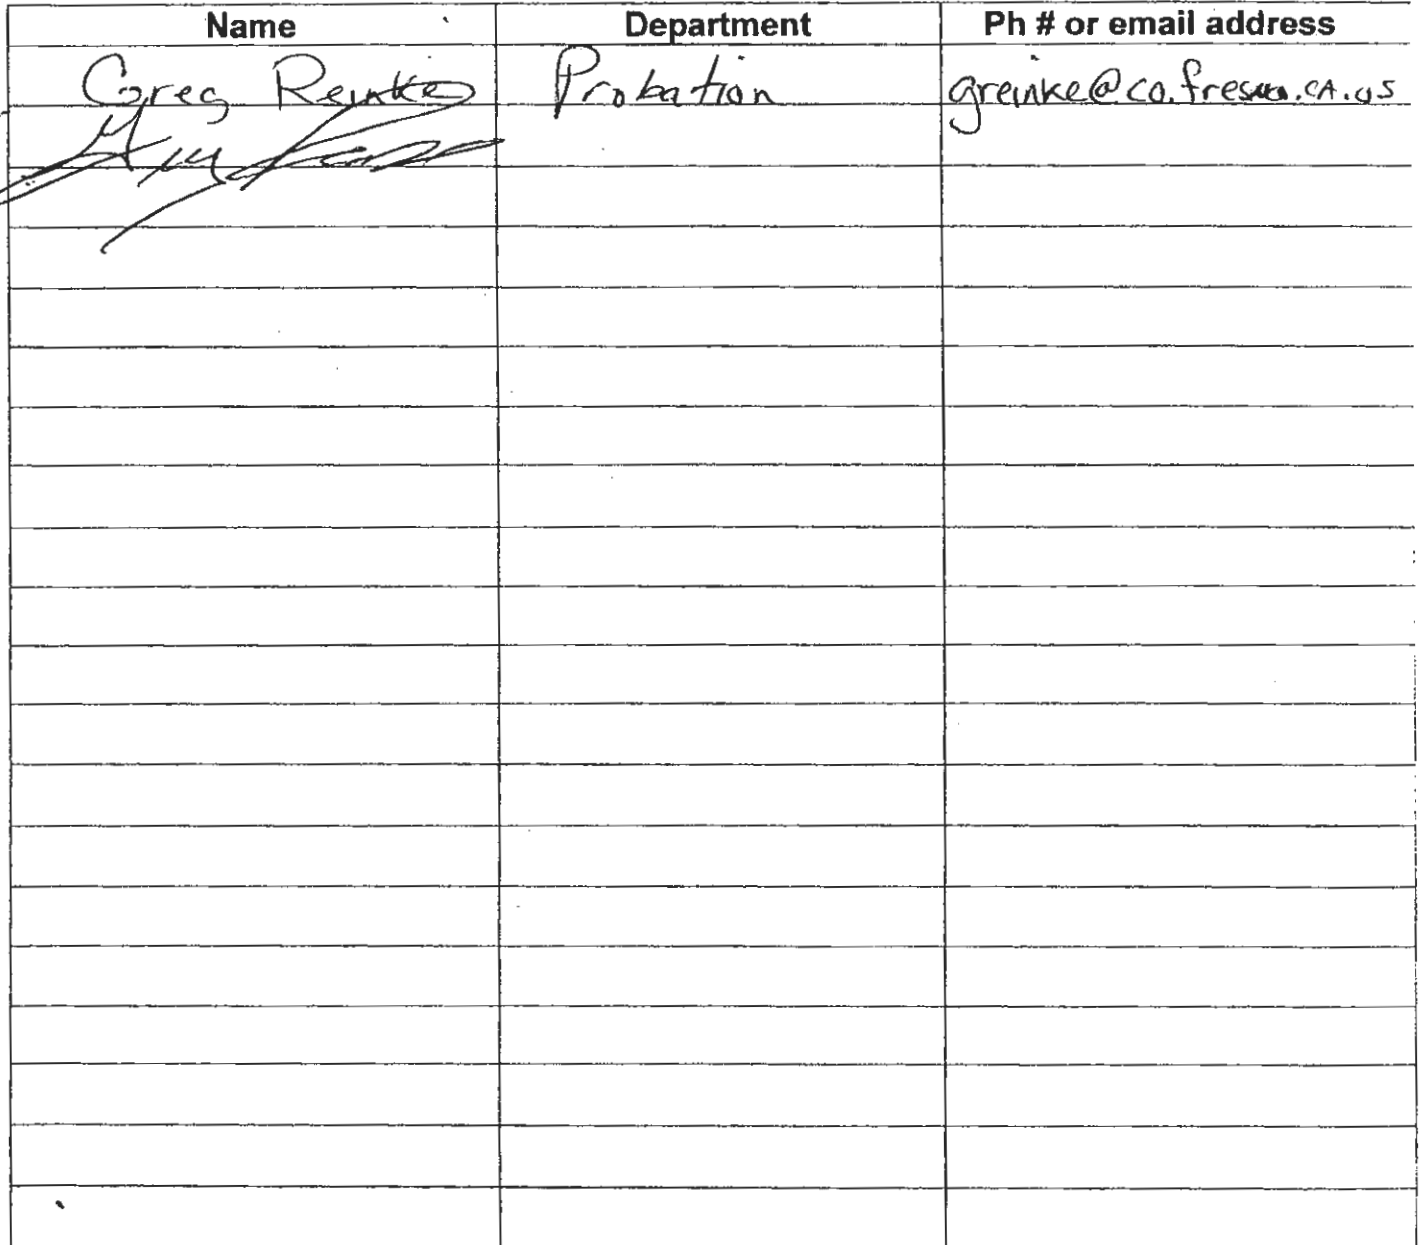 Name Department Ph # or email address
Greg Reinke Probation greinke@co.fresno.CA.us